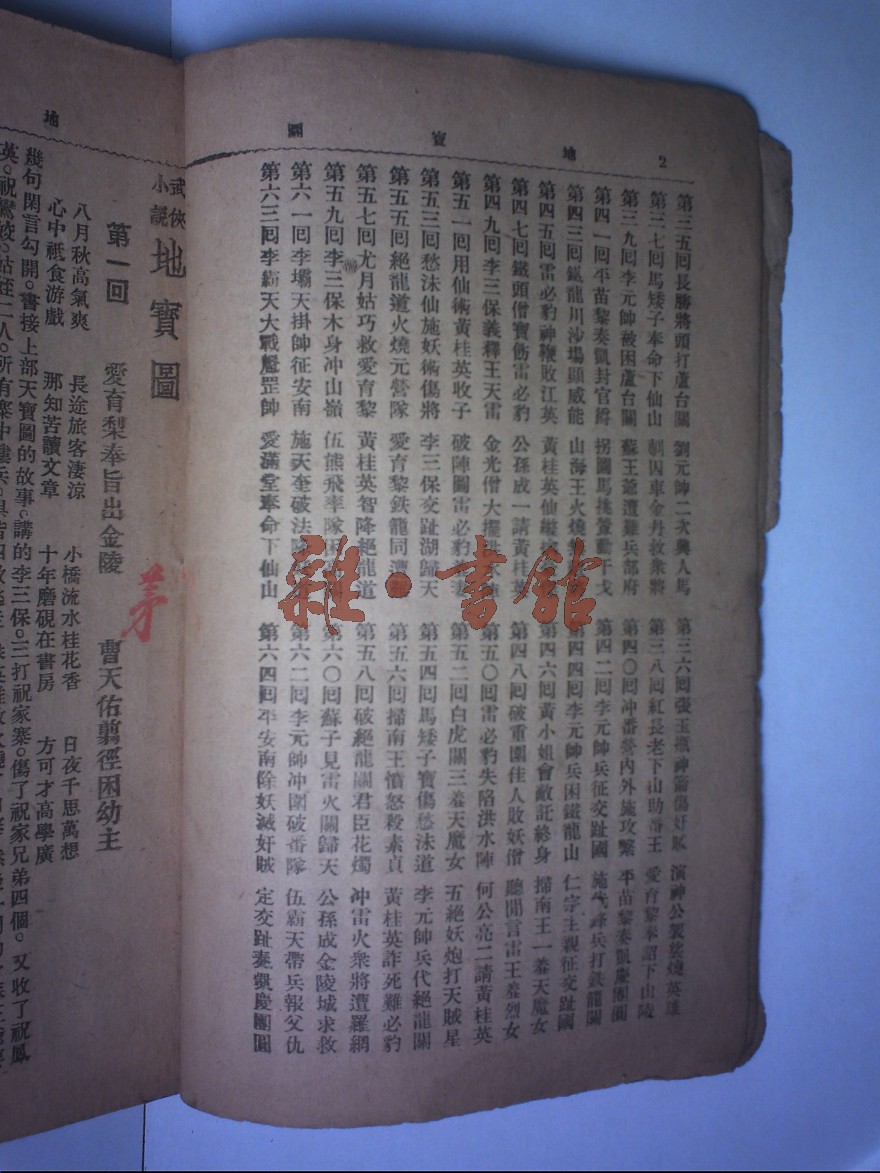 2 地寶圖
第三五回長勝將頭打蘆台關 劉元帥二次興人馬 第三六回張玉 神箭傷奸賊 演神公製裟燒英雄
第三七回馬矮子奉命下仙山 制因車金丹救衆將 第三八回紅長老下山助番王 愛育黎奉詔下山陵
第三九回李元帥被困蘆台關 蘇王爺遭難兵部府 第四〇回冲番營內外施攻擊 平苗黎奏凱慶團圓
第四一回平苗黎奏凱封官爵 拐國馬挑釁動干戈 第四二回李元帥兵征交趾國 施 鋒兵打鉄龍關
第四三回鐵龍川沙場顯威能 山海王火燒 第四四回李元帥兵困鐵龍山 仁宗主親征交趾國
第四五回雷必豹神鞭敗江英 黃桂英仙 第四六回黃小姐會敵託終身 掃南王一羞天魔女
第四七回鐵頭僧寶飭雷必豹 公孫成一請黃桂英 第四八回破重圍佳人敗妖僧 聽閒言雷王羞烈女
第四九回李三保義釋王天雷 金光僧大擺洪水陣 第五〇回雷必豹失陷洪水陣 何公亮二請黃桂英
第五一回用仙術黃桂英收子 破陣圖雷必豹 妻 第五二回白虎關三羞天魔女 五絕妖炮打天賊星
第五三回愁沫仙施妖術傷將 李三保交趾湖歸天 第五四回馬矮子寶傷愁沫道 李元帥兵代絕龍關
第五五回絕龍道火燒元營隊 愛育黎鉄龍同遭 第五六回掃南王憤怒殺素貞 黃桂英詐死難必豹
第五七回尤月姑巧救愛育黎 黃桂英智降絕龍道 第五八回破絕龍關君臣花燭 冲雷火衆將遭羅網
第五九回李三保木身冲山嶺 伍熊飛率隊困 第六〇回蘇子見雷火關歸天 公孫成金陵城求救
第六一回李壩天掛帥征安南 施天奎破法 第六二回李元帥冲圍破番隊 伍霸天帶兵報父仇
第六三回李霸天大戰鰲罡帥 愛滿堂奉命下仙山 第六四回平安南除妖滅奸賊 定交趾奏凱慶團圓
雜·書館
地
武俠小說 地寶圖
第一回 愛育梨奉旨出金陵 曹天佑翦徑困幼主
茅
八月秋高氣爽 長途旅客淒涼 小橋流水桂花香 日夜千思萬想
心中祇食游戲 那知苦讀文章 十年磨硯在書房 方可才高學廣
幾句閑言勾開。書接上部天寶圖的故事。講的李三保。三打祝家寨。傷了祝家兄弟四個。又收了祝鳳
英。祝鸞姣。姑姪二人。所有寨中